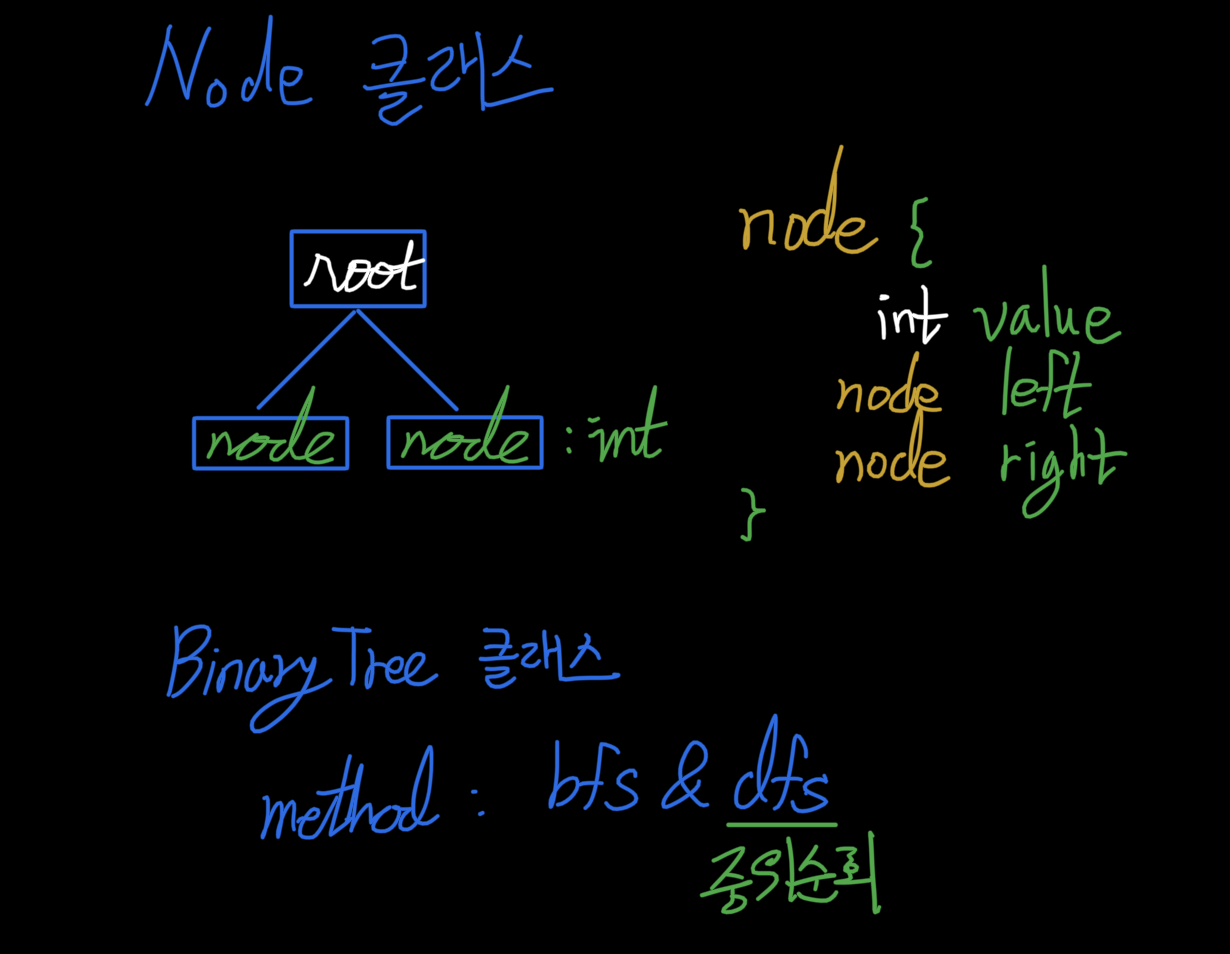 Node 클래스
root
node node : int
node {
int value
node left
node right
}
Binary Tree 클래스
method : bfs & dfs
중위순회